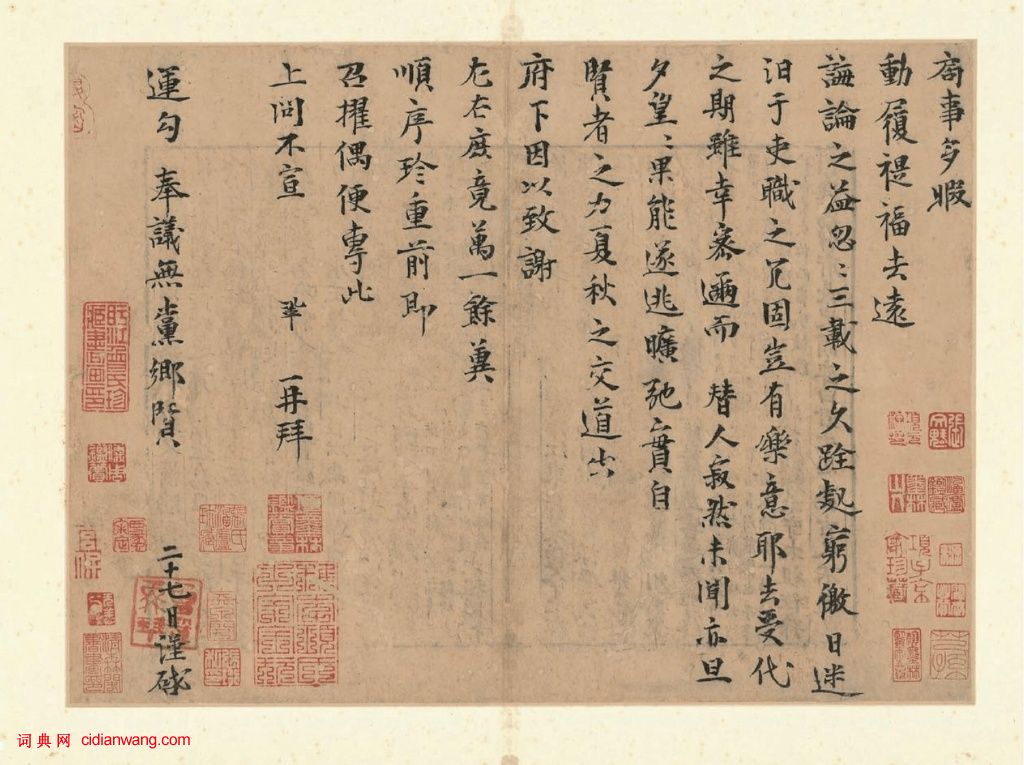 局事多暇
動履禔福去遠
議論之益忽〻三載之久跧處窮徼日迷
汩于吏職之冗固豈有樂意耶去受代
之期雖幸密邇而替人寂然未聞亦旦
夕望〻果能遂逃曠弛實自
賢者之力夏秋之交道出
府下因以致謝
左右庶竟萬一餘冀
順序珍重前即
召擢偶便專此
上問不宣 鞏 再拜
運勾 奉議無黨鄉賢
二十七日謹啟
词典网 cidianwang.com